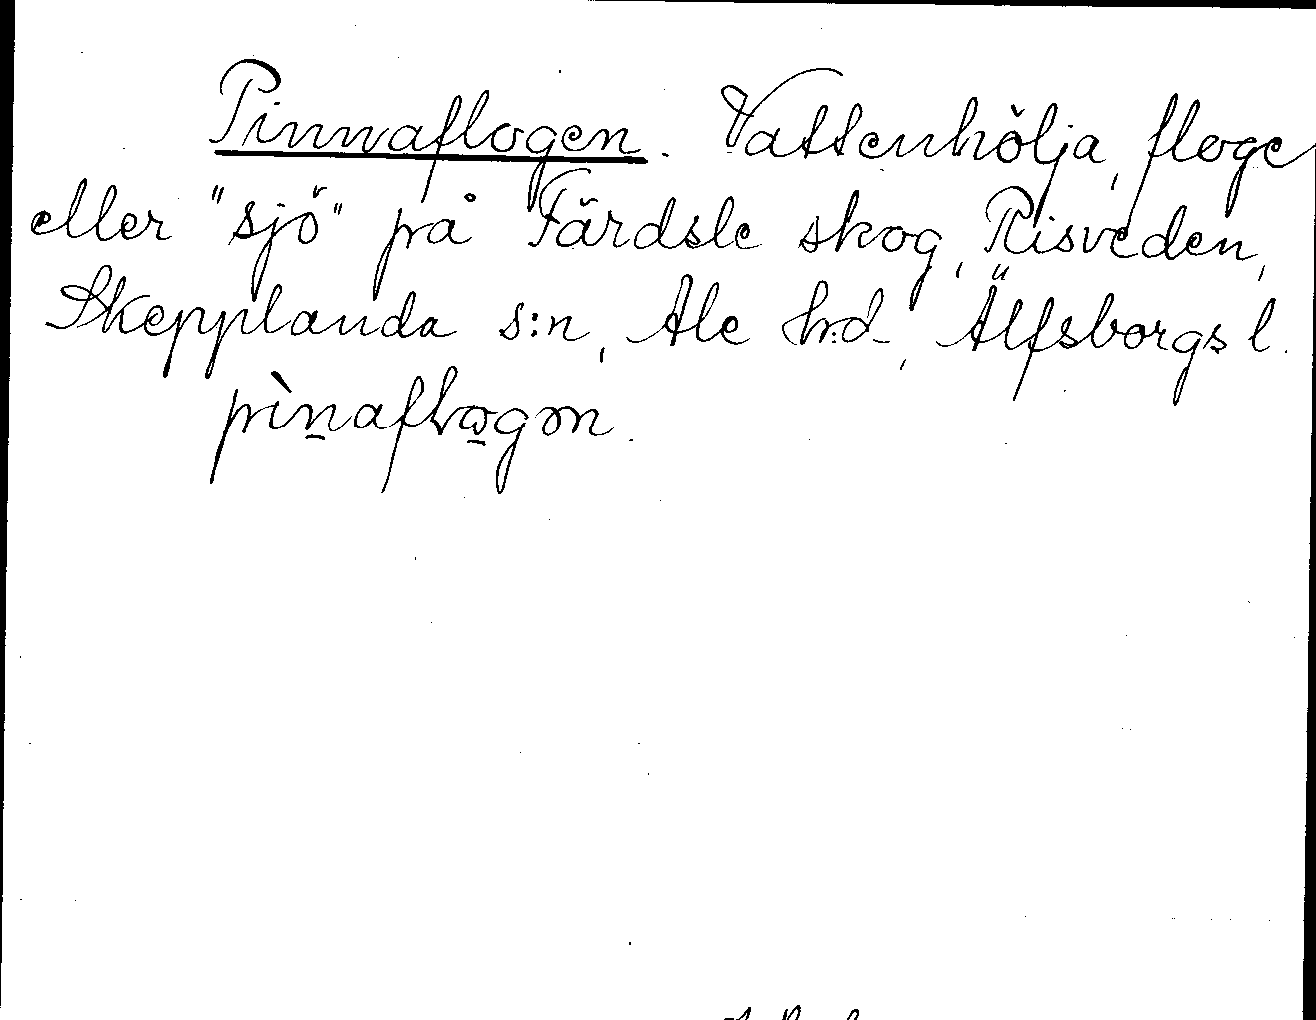 Pinnaflogen. Vattenhölja, floge
eller "sjö" på Färdsle skog, Risveden,
Skepplanda s:n, Ale h:d, Älfsborgs l.
pìn̠aflo̠gən.